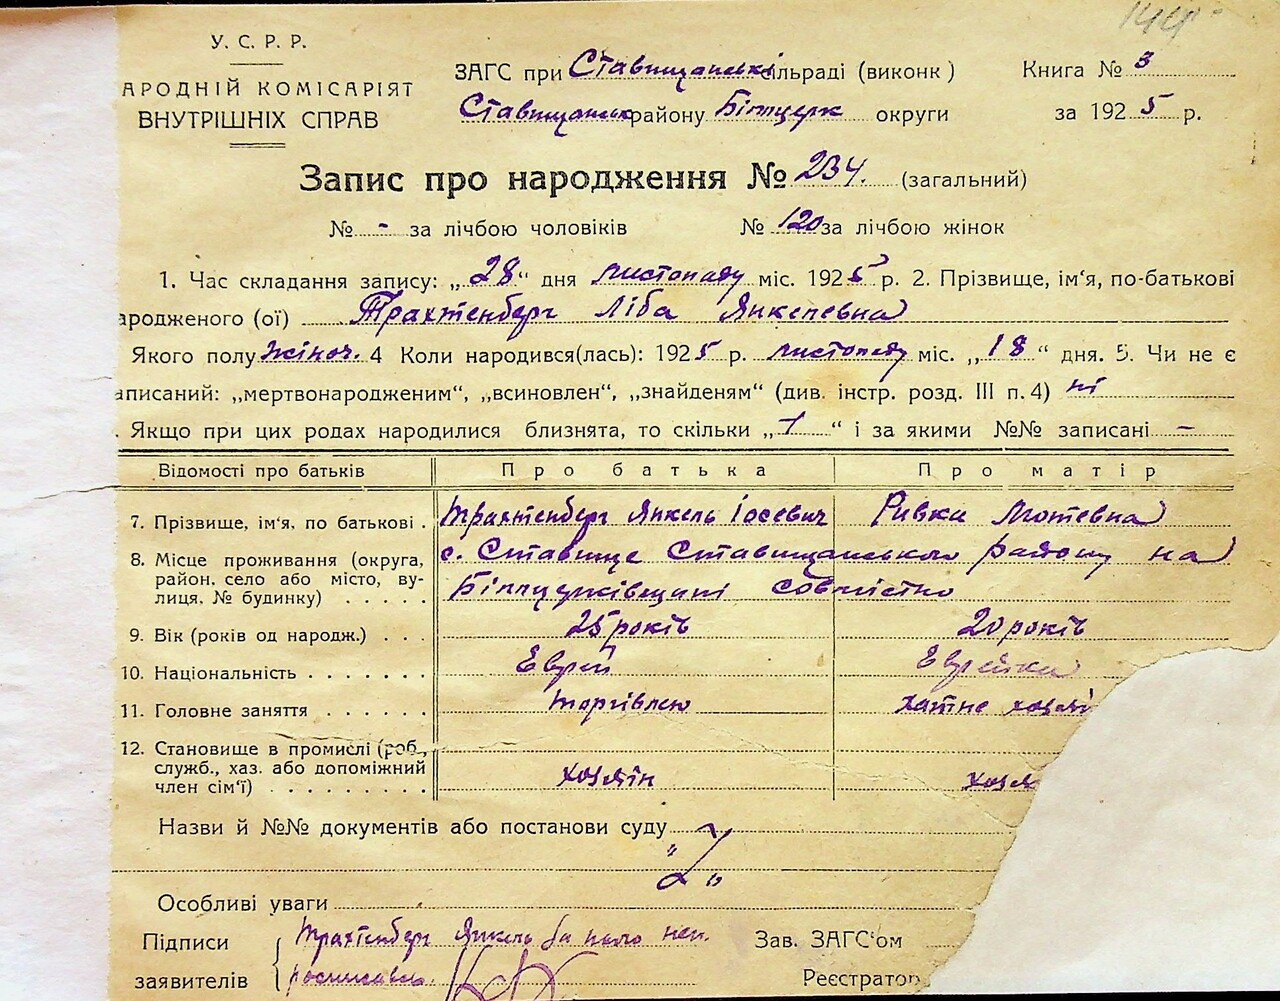 144
У. С. Р. Р.
АРОДНІЙ КОМІСАРІЯТ
ВНУТРІШНІХ СПРАВ
ЗАГС при Ставищанські сільраді (виконк )
Книга № 3
Ставищанськ району Білцерк округи
за 1925 р.
Запис про народження № 234. (загальний)
№ - за лічбою чоловіків № 120 за лічбою жінок
1. Час складання запису: „28“ дня листопаду міс. 1925 р. 2. Прізвище, ім'я, по-батькові
ародженого (ої) Трахтенберг Ліба Янкелевна
Якого полу жіноч. 4 Коли народився(лась): 1925 р. листопаду міс. „18“ дня. 5. Чи не є
аписаний: „мертвонародженим“, „всиновлен“, „знайденям“ (див. інстр. розд. III п. 4) ні
. Якщо при цих родах народилися близнята, то скільки „1“ і за якими №№ записані -
Відомості про батьків Про батька Про матір
7. Прізвище, ім'я, по батькові . Трахтенберг Янкель Іосевич Ривка Мотевна
8. Місце проживання (округа, район, село або місто, вулиця, № будинку) . . . . . с. Ставище Ставищанського району на
Білцерківщані совмістно
9. Вік (років од народж.) . . . 25 років 20 років
10. Національність . . . . . . . Еврей Еврейка
11. Головне заняття . . . . . . Торгівлею хатне хозяі
12. Становище в промислі (роб., служб., хаз. або допоміжний член сім'ї) . . . . . . . . . хозяїн хозя
Назви й №№ документів або постанови суду
Особливі уваги
Підписи
заявителів
Трахтенберг Янкель
Зав. ЗАГС'ом
Реєстратор